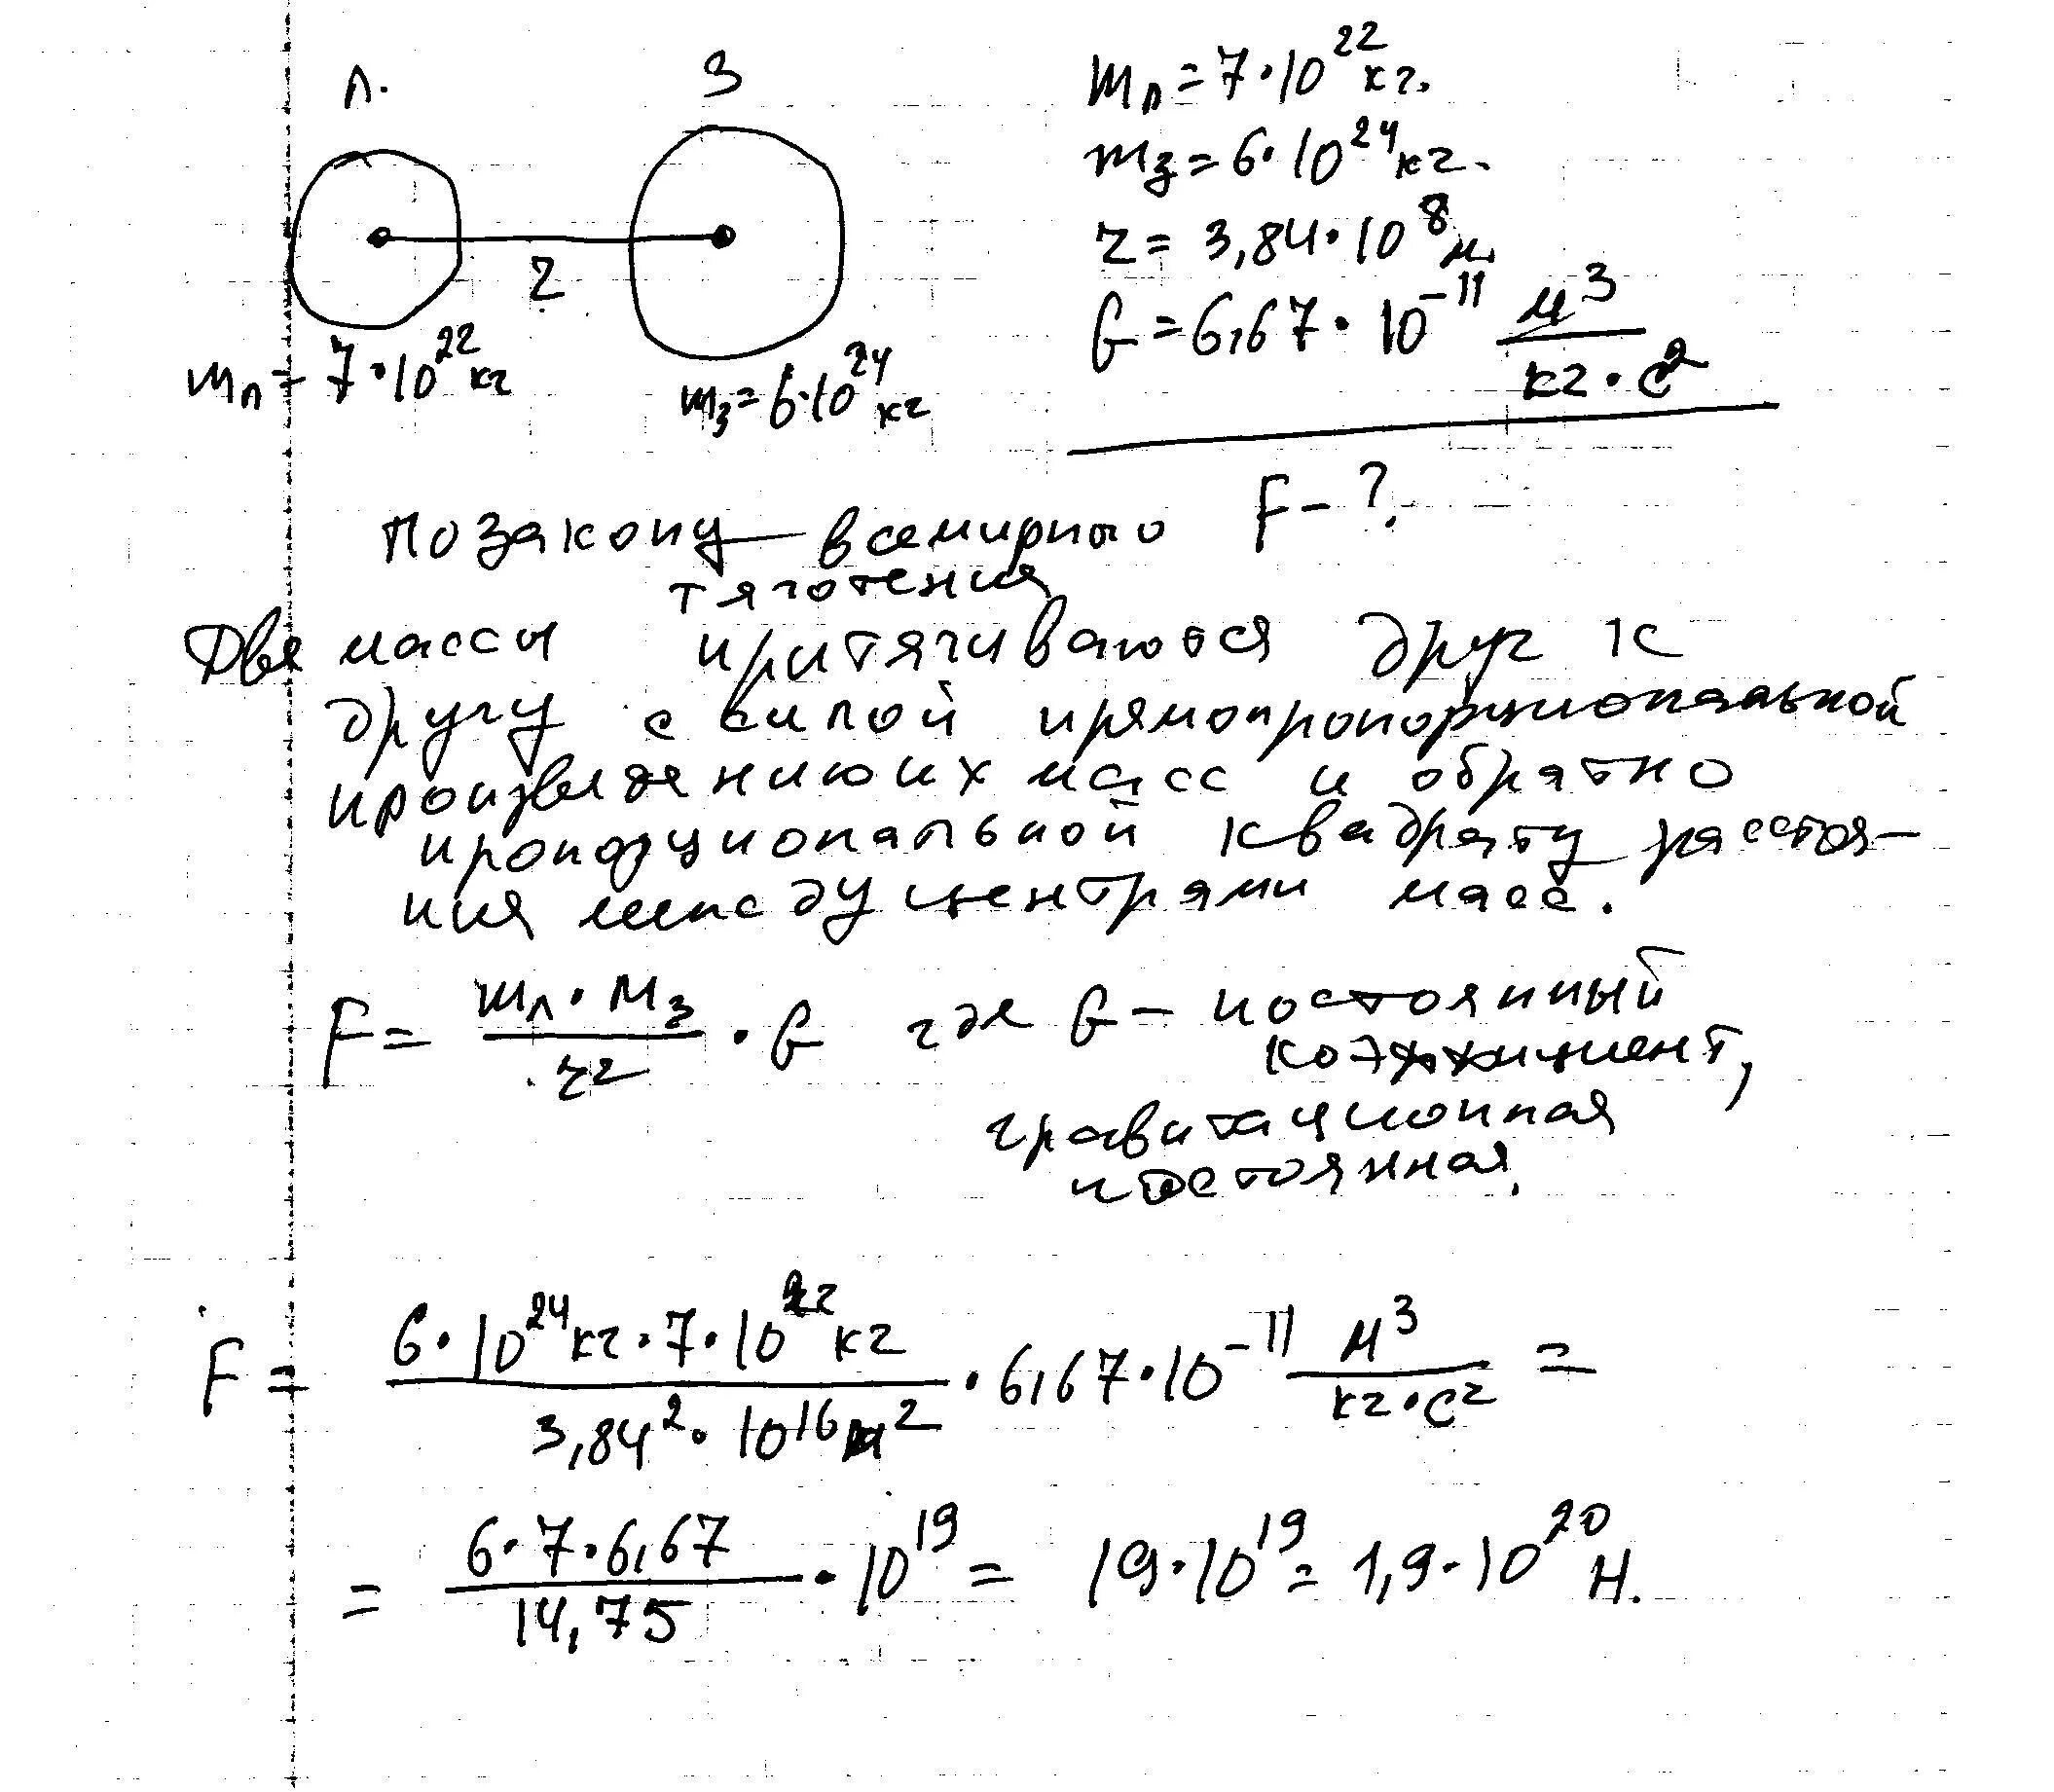 Л.
З
mл = 7·10²² кг
r
mз = 6·10²⁴ кг
mл = 7·10²² кг.
mз = 6·10²⁴ кг.
r = 3,84·10⁸ м.
G = 6,67·10⁻¹¹ м³/кг·с²
F - ?
По закону всемирного
тяготения
Две массы притягиваются друг к
другу с силой прямопропорциональной
произведению их масс и обратно
пропорциональной квадрату расстоя-
ния между центрами масс.
F = mл·Mз/r² · G где G - постоянный
коэффициент,
гравитационная
постоянная.
F = 6·10²⁴кг·7·10²²кг/3,84²·10¹⁶м² · 6,67·10⁻¹¹ м³/кг·с² =
= 6·7·6,67/14,75 · 10¹⁹ = 19·10¹⁹ = 1,9·10²⁰ Н.